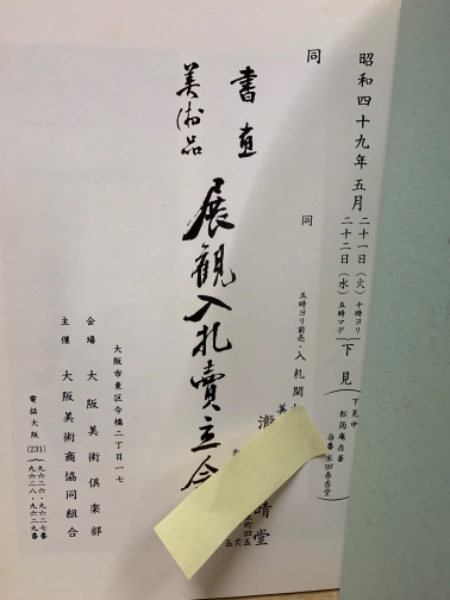 昭和四十九年五月
二十一日(火)十時ヨリ
二十二日(水)五時マデ
下見
下見中
松筠庵在釜
同
同
五時ヨリ前売・入札開
書画
美術品
展観入札賣立会
晴堂
大阪市東区今橋二丁目一七
会場 大阪美術倶楽部
主催 大阪美術商協同組合
電話大阪(231)九六二六・九六二七番
九六二八・九六二九番